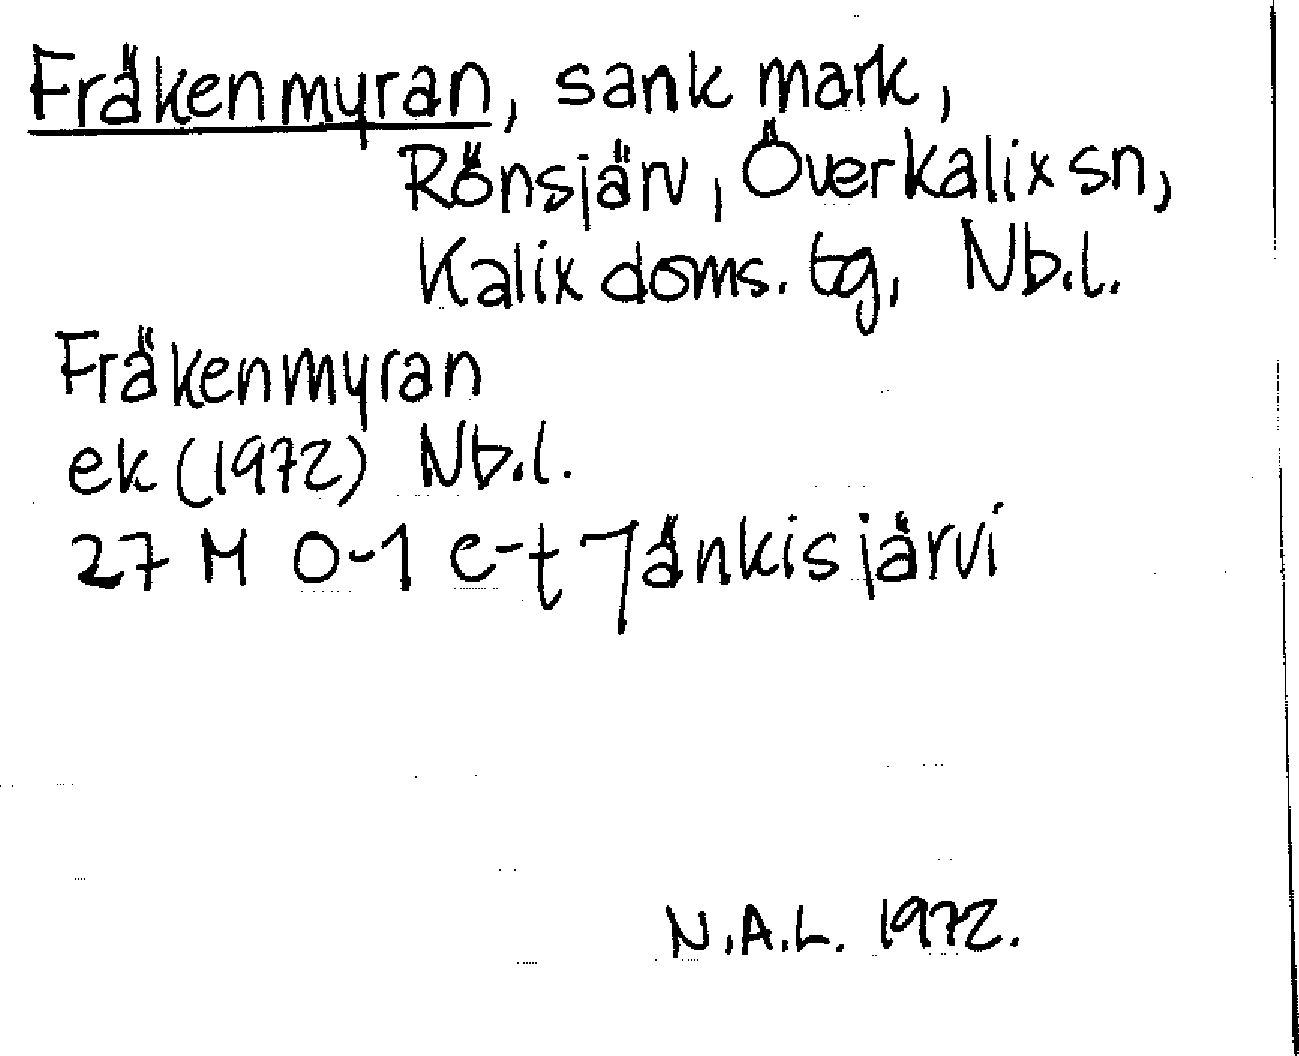 Fräkenmyran, sank mark,
Rönsjärv, Överkalix sn,
Kalix doms. tg, Nb.l.
Fräkenmyran
ek (1972) Nb.l.
27 M 0-1 e-f Jänkisjärvi
N.A.L. 1972.